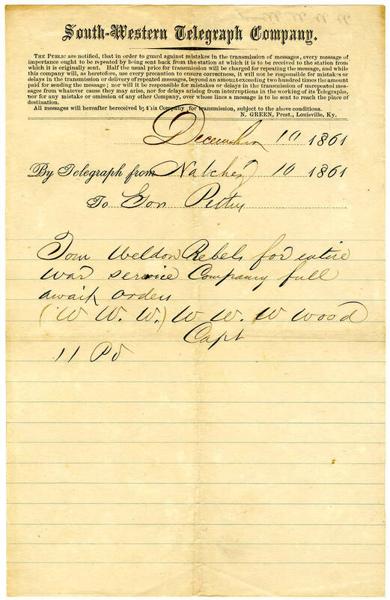 South-Western Telegraph Company.
THE PUBLIC are notified, that in order to guard against mistakes in the transmission of messages, every message of
importance ought to be repeated by being sent back from the station at which it is to be received to the station from
which it is originally sent. Half the usual price for transmission will be charged for repeating the message, and while
this company will, as heretofore, use every precaution to ensure correctness, it will not be responsible for mistakes or
delays in the transmission or delivery of repeated messages, beyond an amount exceeding two hundred times the amount
paid for sending the message; nor will it be responsible for mistakes or delays in the transmission of unrepeated mes-
sages from whatever cause they may arise, nor for delays arising from interruptions in the working of its Telegraphs,
nor for any mistake or omission of any other Company, over whose lines a message is to be sent to reach the place of
destination.
All messages will hereafter be received by this Company for transmission, subject to the above conditions.
N. GREEN, Prest., Louisville, Ky.
December 10 1861
By Telegraph from Natchez 10 1861
To Gov Pettus
Tom Weldon Rebels for entire
war service Company full
await orders
(W W. W.) W W. W Wood
Capt
11 Pd